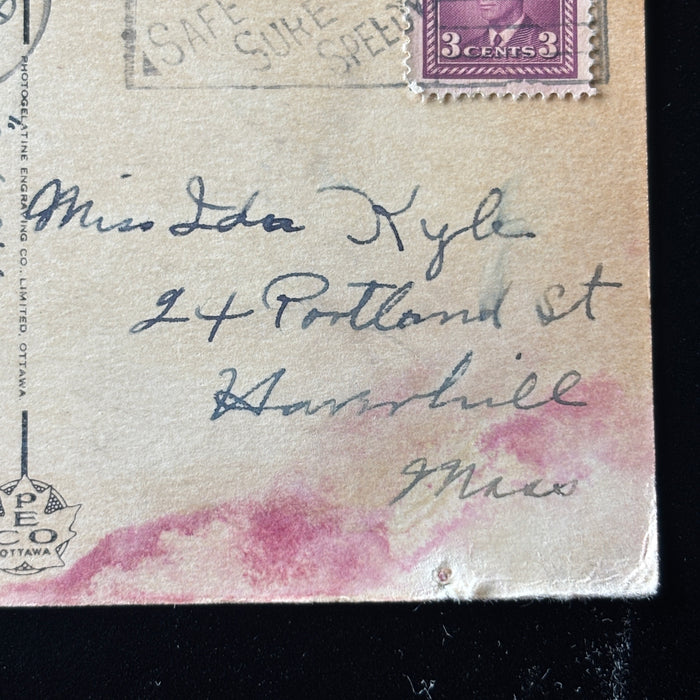 SAFE
SURE
SPEEDY
3 CENTS 3
PHOTOGELATINE ENGRAVING CO., LIMITED, OTTAWA
Miss Ida Kyle
24 Portland St
Haverhill
Mass
PECO
OTTAWA